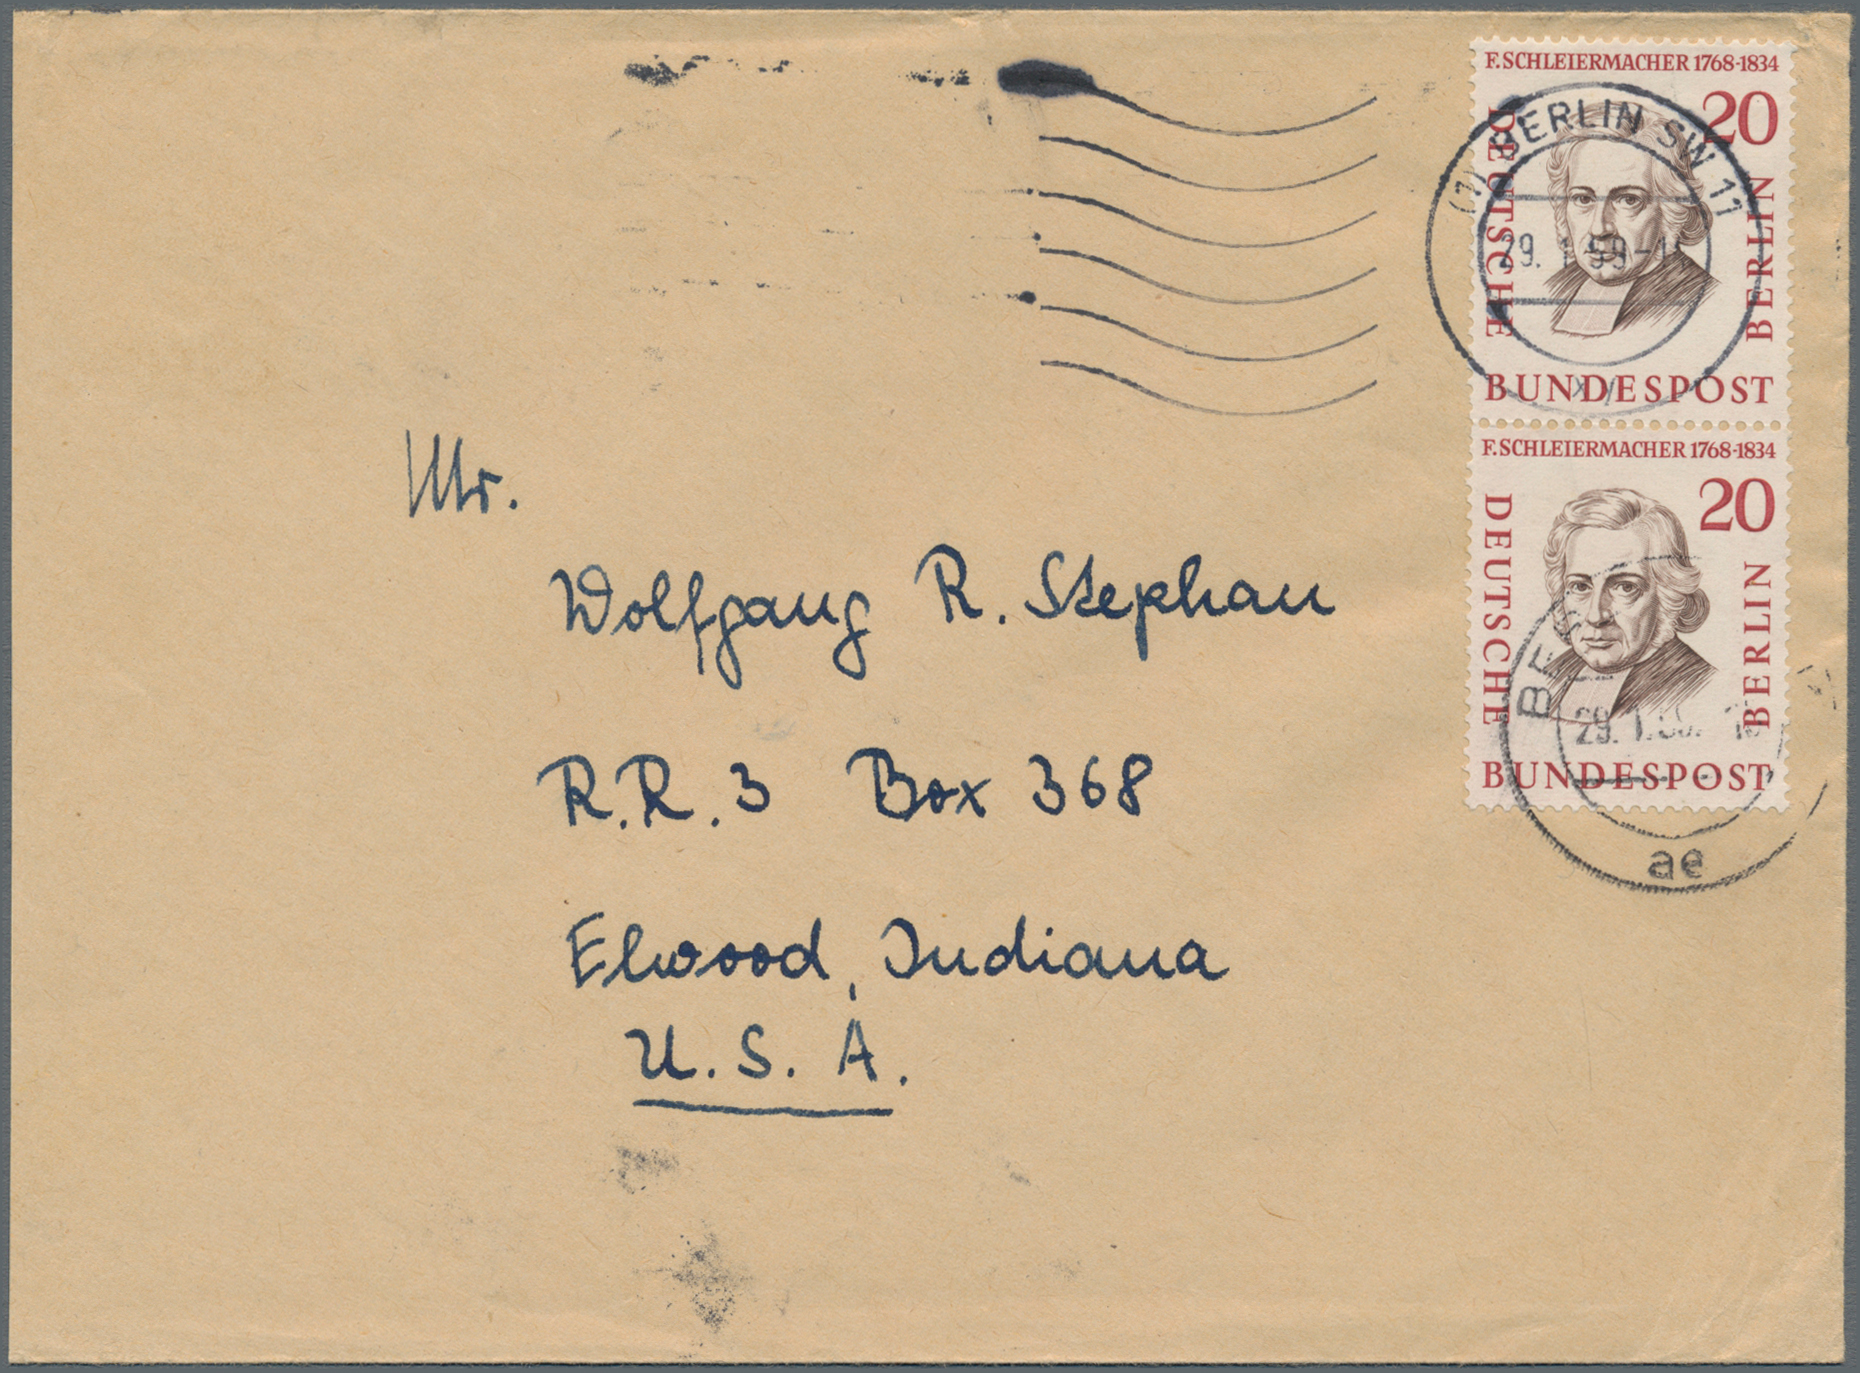 F. SCHLEIERMACHER 1768-1834
20
DEUTSCHE
BERLIN
BUNDESPOST
BERLIN SW 11
29. 1. 59
F. SCHLEIERMACHER 1768-1834
20
DEUTSCHE
BERLIN
BUNDESPOST
29. 1.
ae
Mr.
Wolfgang R. Stephan
R.R. 3 Box 368
Elwood, Indiana
U. S. A.